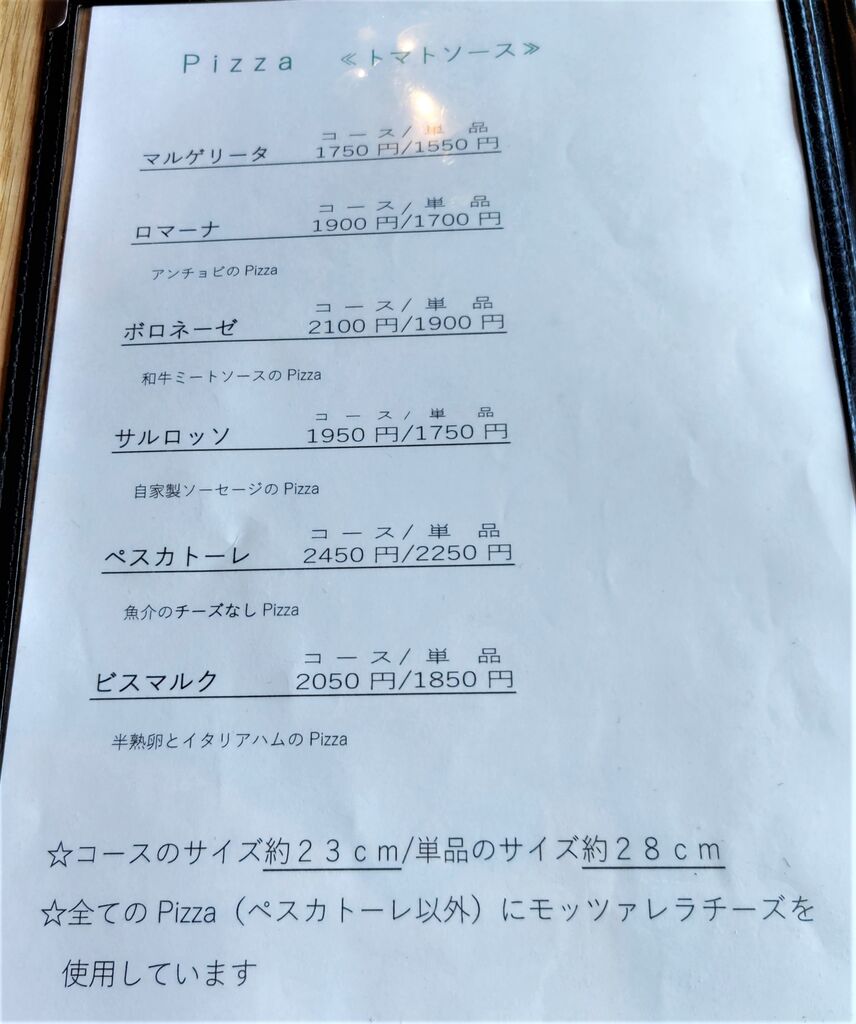 Pizza ≪トマトソース≫
コース/単品
マルゲリータ 1750円/1550円
コース/単品
ロマーナ 1900円/1700円
アンチョビのPizza
コース/単品
ボロネーゼ 2100円/1900円
和牛ミートソースのPizza
コース/単品
サルロッソ 1950円/1750円
自家製ソーセージのPizza
コース/単品
ペスカトーレ 2450円/2250円
魚介のチーズなしPizza
コース/単品
ビスマルク 2050円/1850円
半熟卵とイタリアハムのPizza
☆コースのサイズ約23cm/単品のサイズ約28cm
☆全てのPizza（ペスカトーレ以外）にモッツァレラチーズを
使用しています